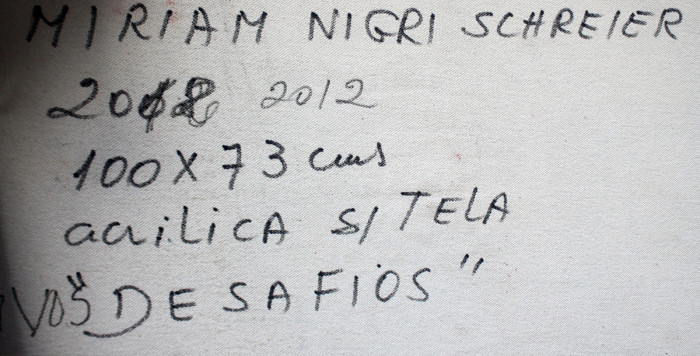 MIRIAM NIGRI SCHREIER
2012 2012
100 X 73 cms
acrilicA S/ TELA
"DESAFIOS"